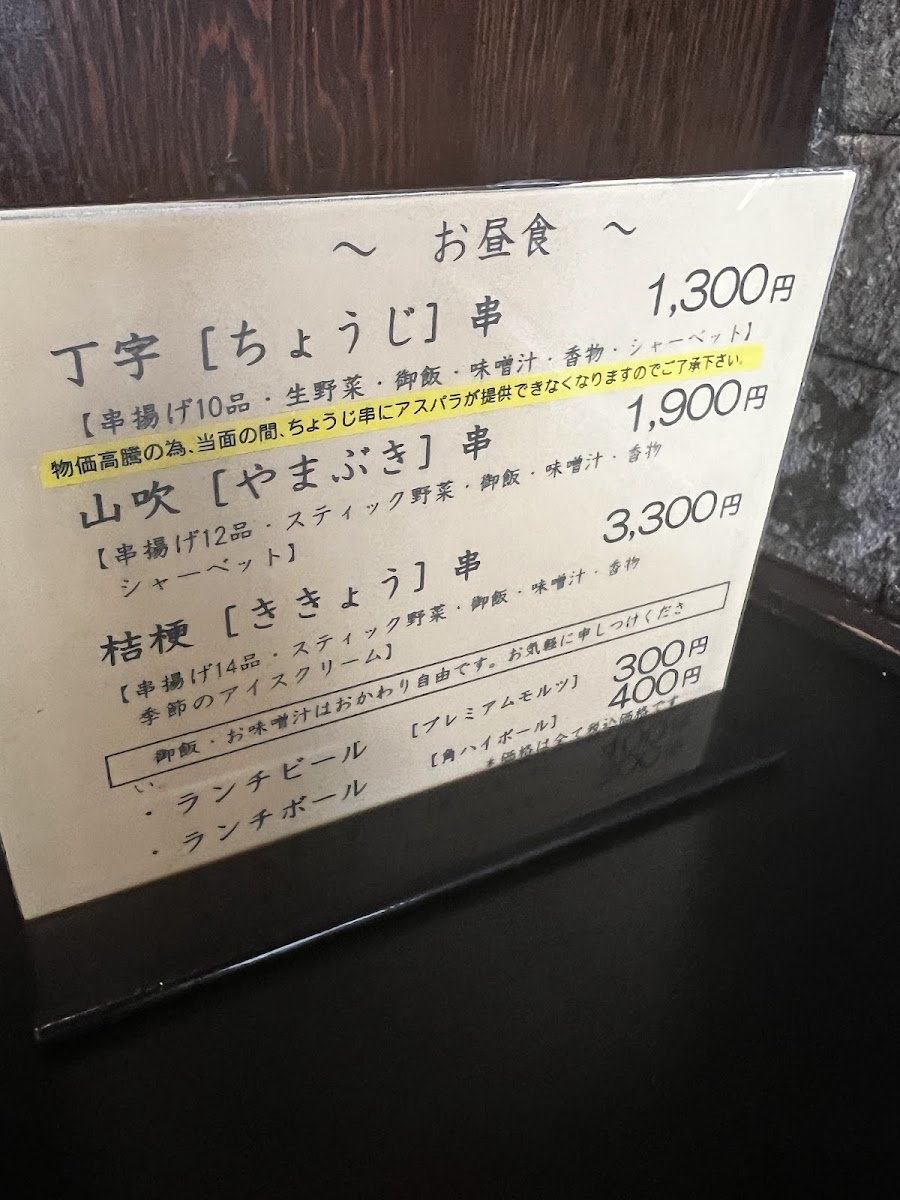 ～ お昼食 ～
丁字［ちょうじ］串 1,300円
【串揚げ10品・生野菜・御飯・味噌汁・香物・シャーベット】
物価高騰の為、当面の間、ちょうじ串にアスパラが提供できなくなりますのでご了承下さい。
山吹［やまぶき］串 1,900円
【串揚げ12品・スティック野菜・御飯・味噌汁・香物
シャーベット】
桔梗［ききょう］串 3,300円
【串揚げ14品・スティック野菜・御飯・味噌汁・香物
季節のアイスクリーム】
御飯・お味噌汁はおかわり自由です。お気軽に申しつけくださ
い
・ランチビール ［プレミアムモルツ］ 300円
・ランチボール ［角ハイボール］ 400円
＊価格は全て税込価格です